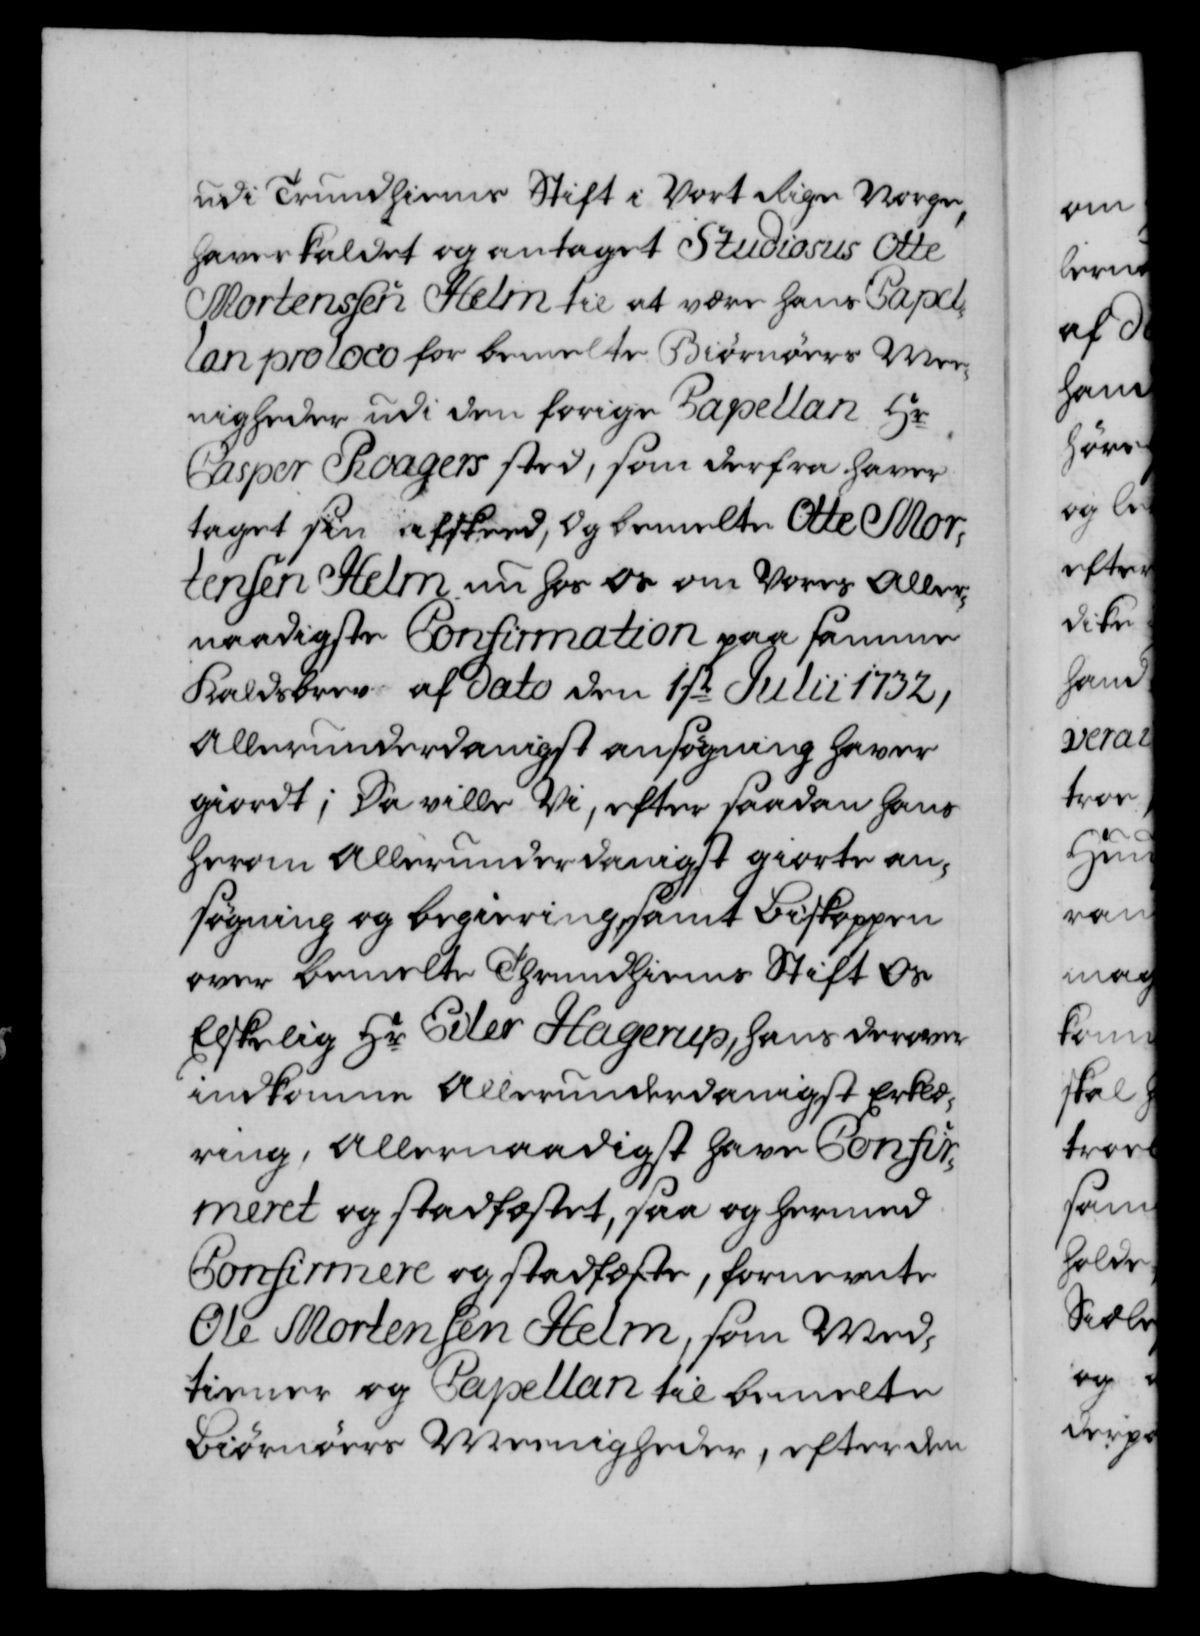 udi Trundhiems Stift i Vort Rige Norge,
haver kaldet og antaget Studiosus Otte
Mortenssen Helm til at være hans Capel,
lan pro loco for bemelte Biørnøers Mee,
nigheder udi den forige Capellan Hr
Casper Roagers sted, som derfra haver
taget sin afskeed, Og bemelte Otte Mor,
tensen Helm nu hos Os om Vores Aller,
naadigste Confirmation paa samme
Kaldsbrev af Dato den 1st Julii 1732,
Allerunderdanigst ansøgning haver
giordt; Da ville Vi, efter saadan hans
herom Allerunderdanigst giorte an,
søgning og begiering, samt Biskoppen
over bemelte Thrundhiems Stift Os
Elskelig Hr Eiler Hagerup, hans derover
indkomne Allerunderdanigst Erklæ,
ring, Allernaadigst have Confir,
meret og stadfæstet, saa og hermed
Confirmere og stadfæste, fornevnte
Ole Mortensen Helm, som Med,
tiener og Capellan til bemelte
Biørnøers Meenigheder, efter den